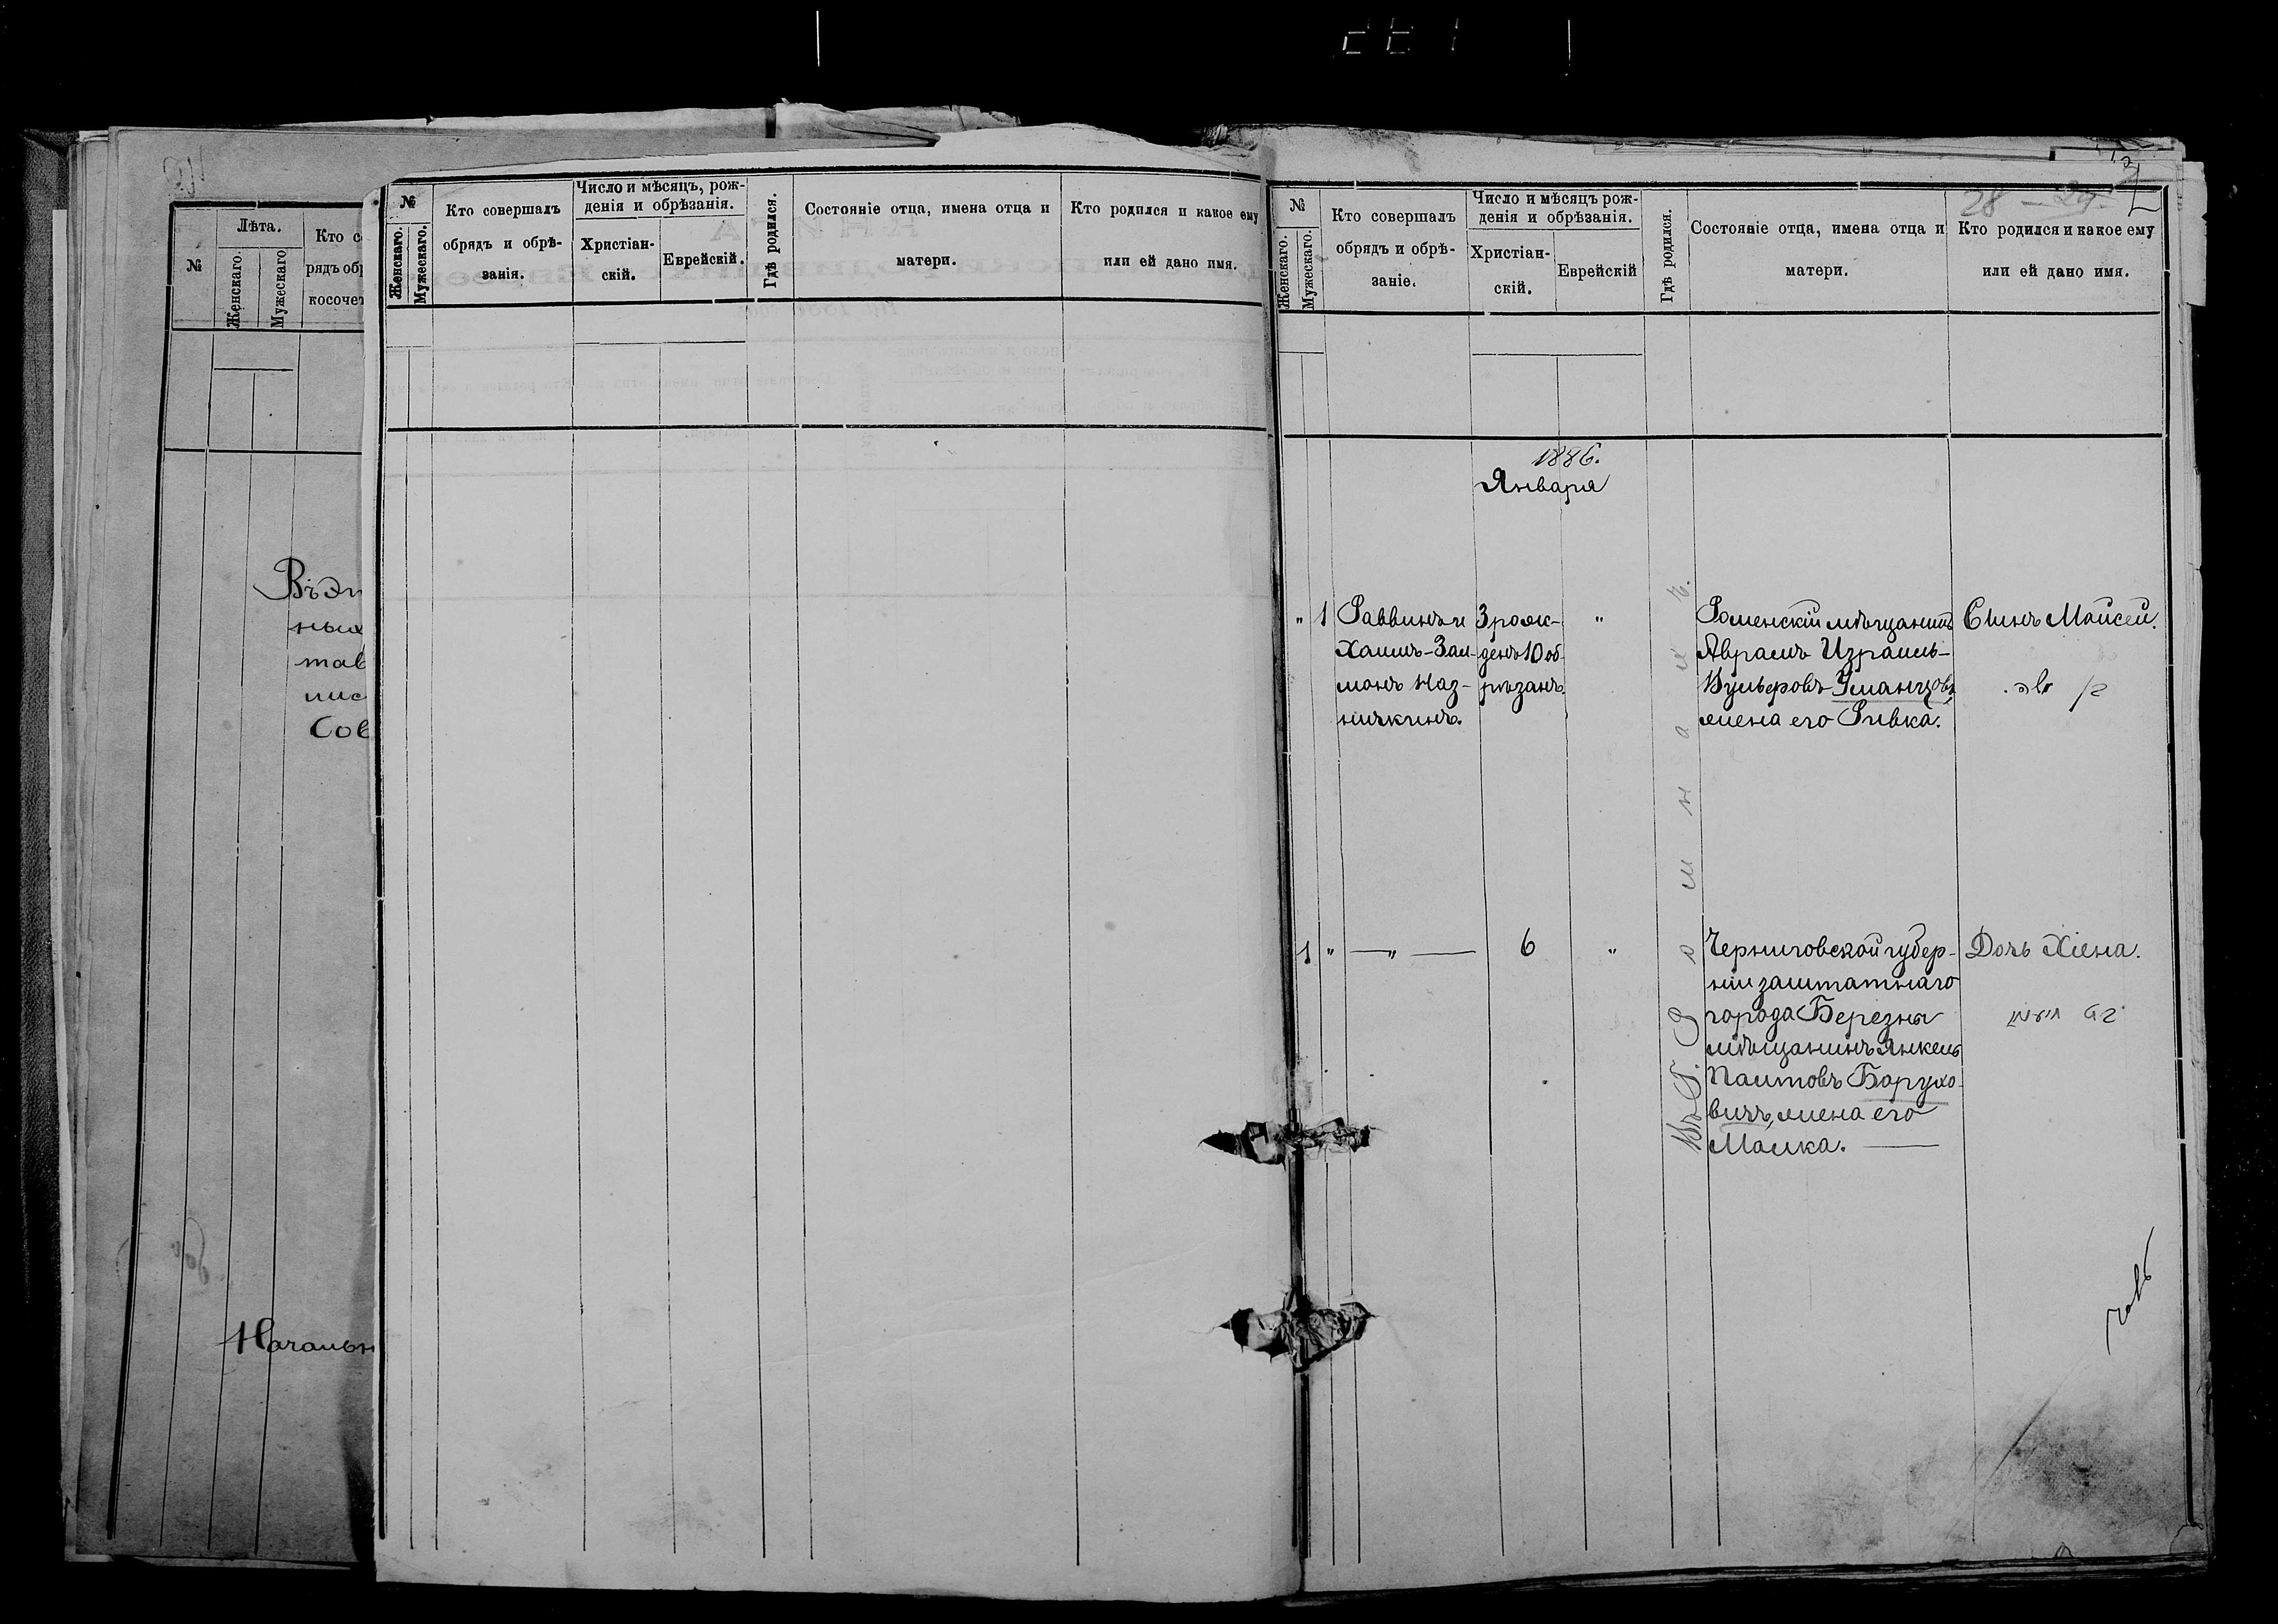 №
Лѣта.
Женскаго.
Мужескаго
Кто со
рядъ обр
косочет
Вѣдн
ных
тав
пис
Сов
Начальн
№
Женскаго.
Мужескаго.
Кто совершалъ
обрядъ и обрѣ-
занія.
Число и мѣсяцъ, рож-
денія и обрѣзанія.
Христіан-
скій.
Еврейскій.
Гдѣ родился.
Состояніе отца, имена отца и
матери.
Кто родился и какое ему
или ей дано имя.
28 - 29
№
Женскаго.
Мужескаго.
Кто совершалъ
обрядъ и обрѣ-
заніе.
Число и мѣсяцъ рож-
денія и обрѣзанія.
Христіан-
скій.
Еврейскій
Гдѣ родился.
Состояніе отца, имена отца и
матери.
Кто родился и какое ему
или ей дано имя.
1886.
Января
" 1 Раввинъ и 3 рож- " Роменскій мѣщанинъ Сынъ Мойсей.
Хаимъ-Зал- денъ 10 об- Аврамъ Израиль-
монъ Наз- рѣзанъ. Вульфовъ Уманцовъ,
ничкинъ. жена его Ривка.
משה
1 " — " — 6 " Черниговской губер- Дочь Хіена.
ніи заштатнаго
города Березны
мѣщанинъ Янкель
Паитовъ Борухо-
вичъ, жена его
Малка. —
Въ Г. Р о м н а х ъ.